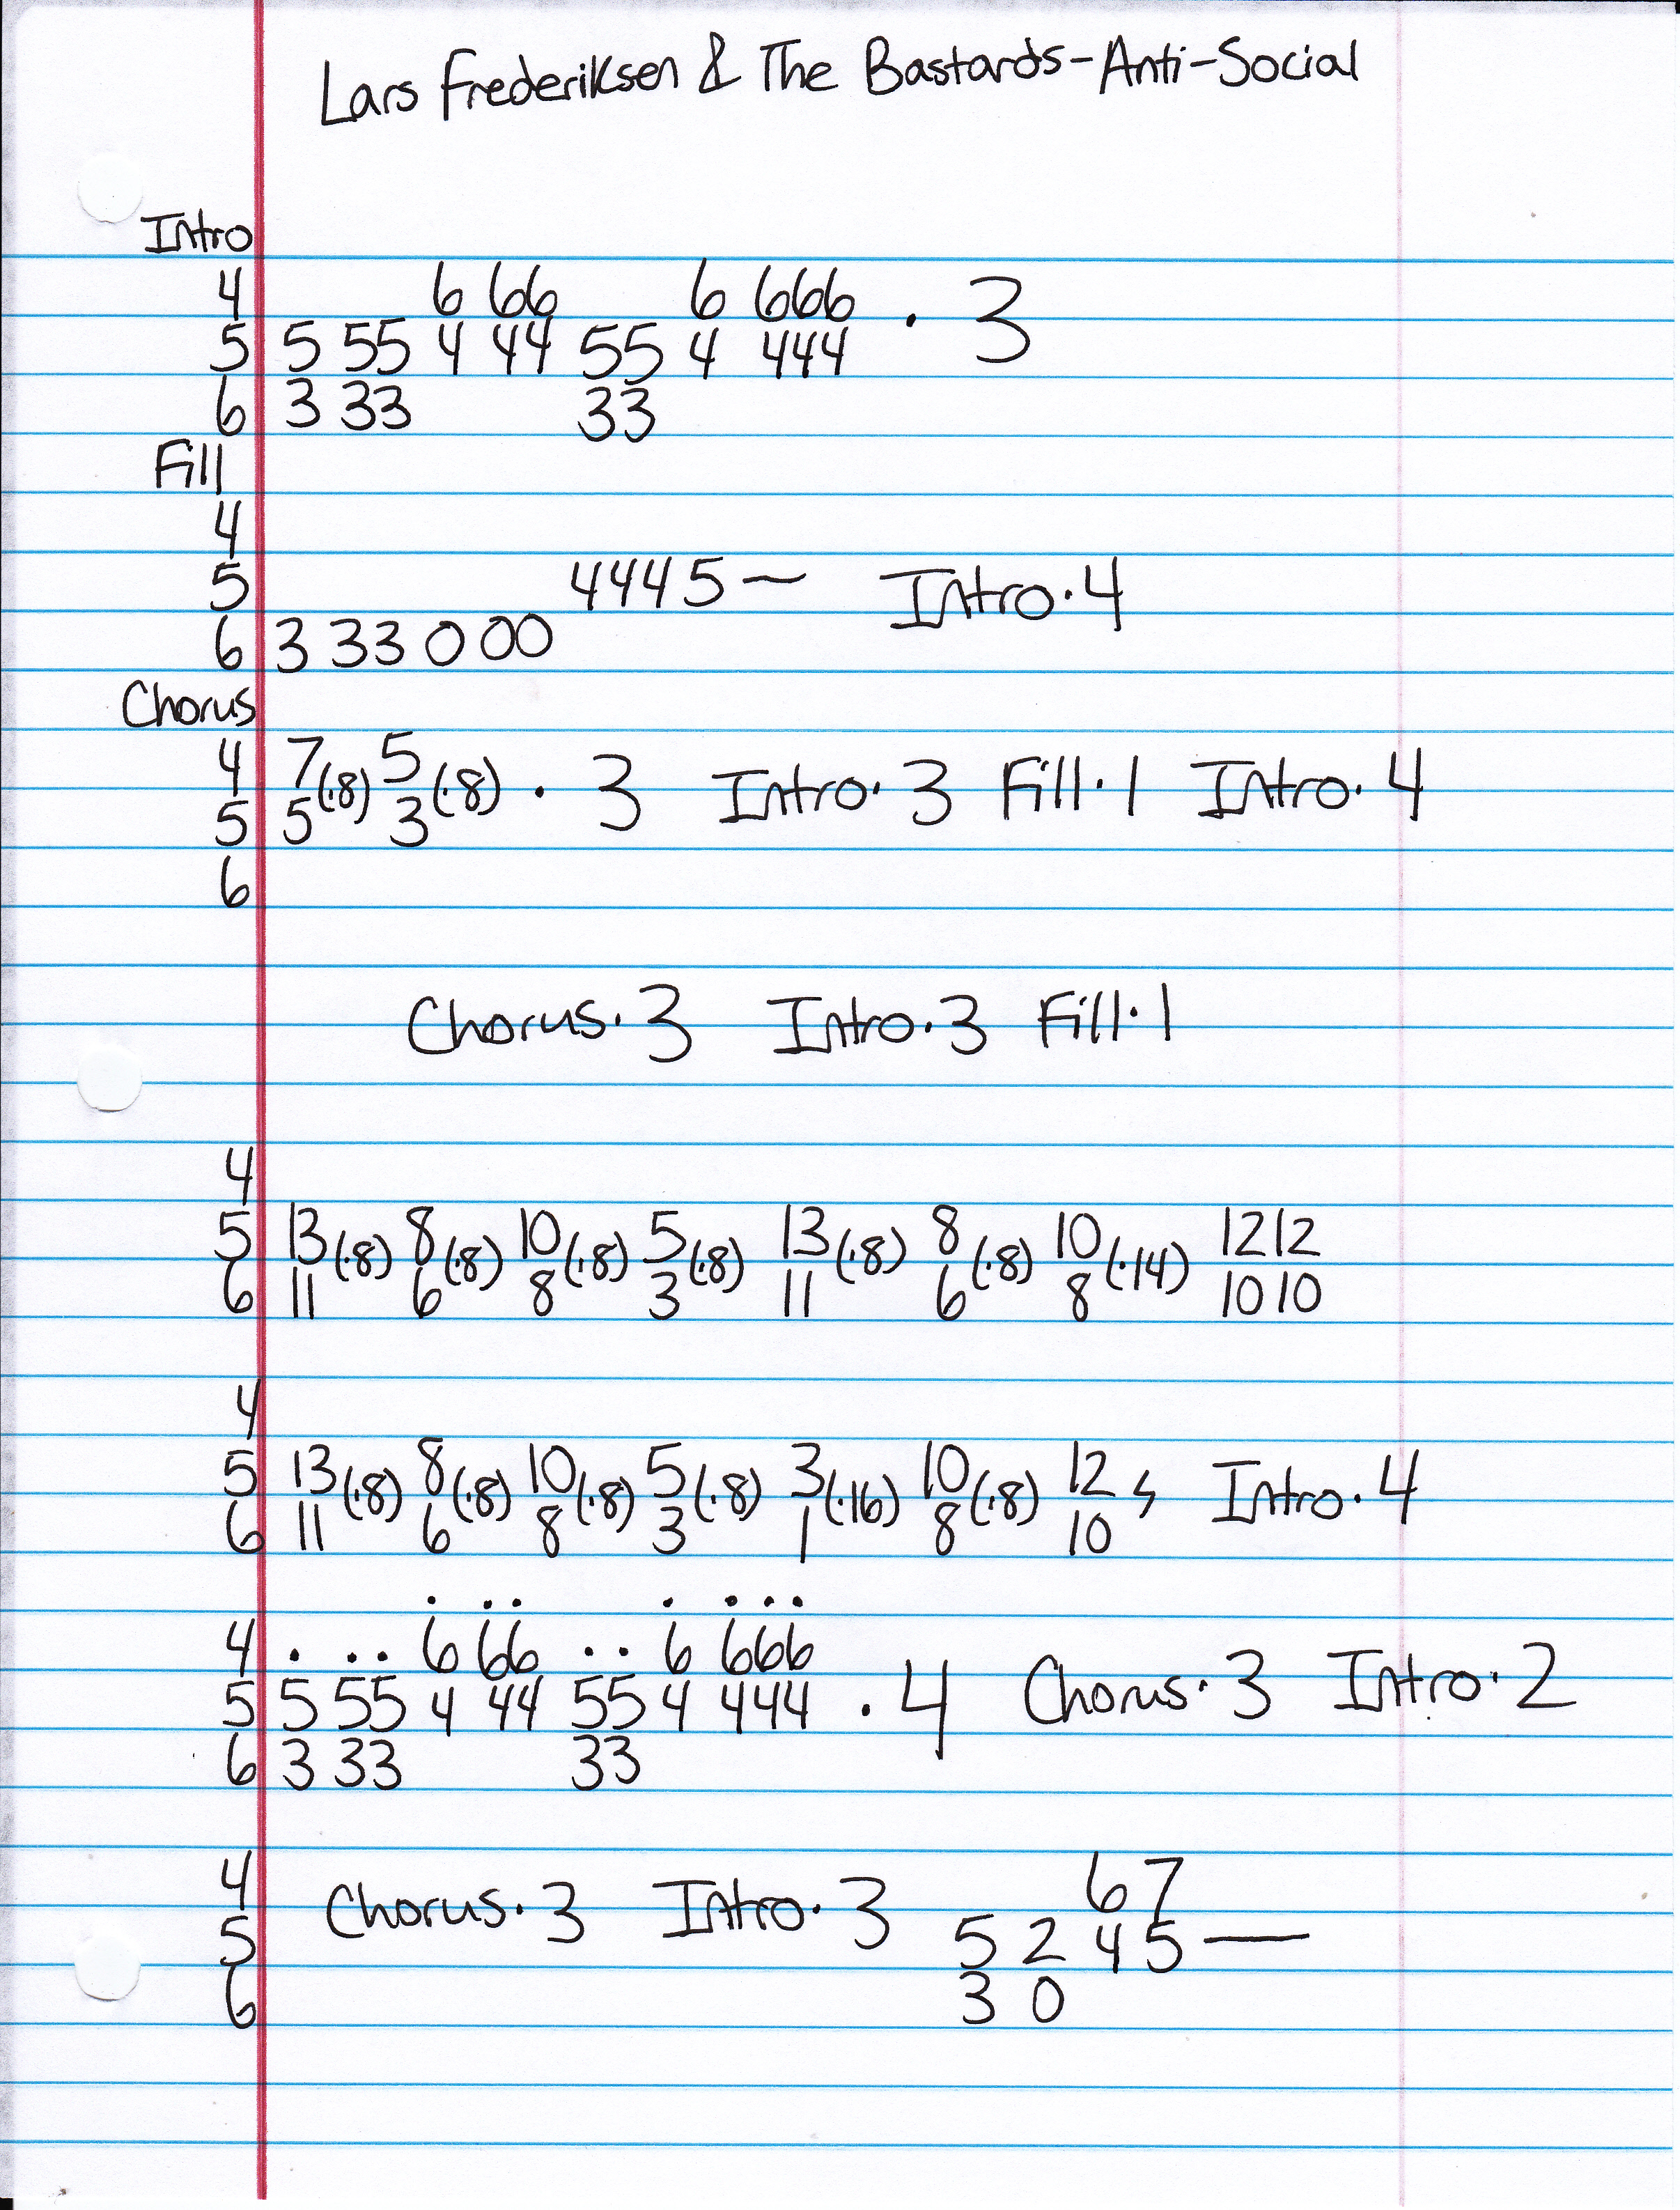 Lars Frederiksen & The Bastards-Anti-Social
Intro
4 6 66 6 666 · 3
5 5 55 4 44 55 4 444
6 3 33 33
Fill
4
5 4445— Intro·4
6 3 33 0 00
Chorus
4 7(·8) 5(·8) · 3 Intro·3 Fill·1 Intro·4
5 5 3
6
Chorus·3 Intro·3 Fill·1
4
5 13(·8) 8(·8) 10(·8) 5(·8) 13(·8) 8(·8) 10(·14) 12 12
6 11 6 8 3 11 6 8 10 10
4
5 13(·8) 8(·8) 10(·8) 5(·8) 3(·16) 10(·8) 12 Intro·4
6 11 6 8 3 1 8 10
. .. . ...
4 . .. 6 66 .. 6 666
5 5 55 4 44 55 4 444 · 4 Chorus·3 Intro·2
6 3 33 33
4 Chorus·3 Intro·3 6 7
5 5 2 4 5—
6 3 0